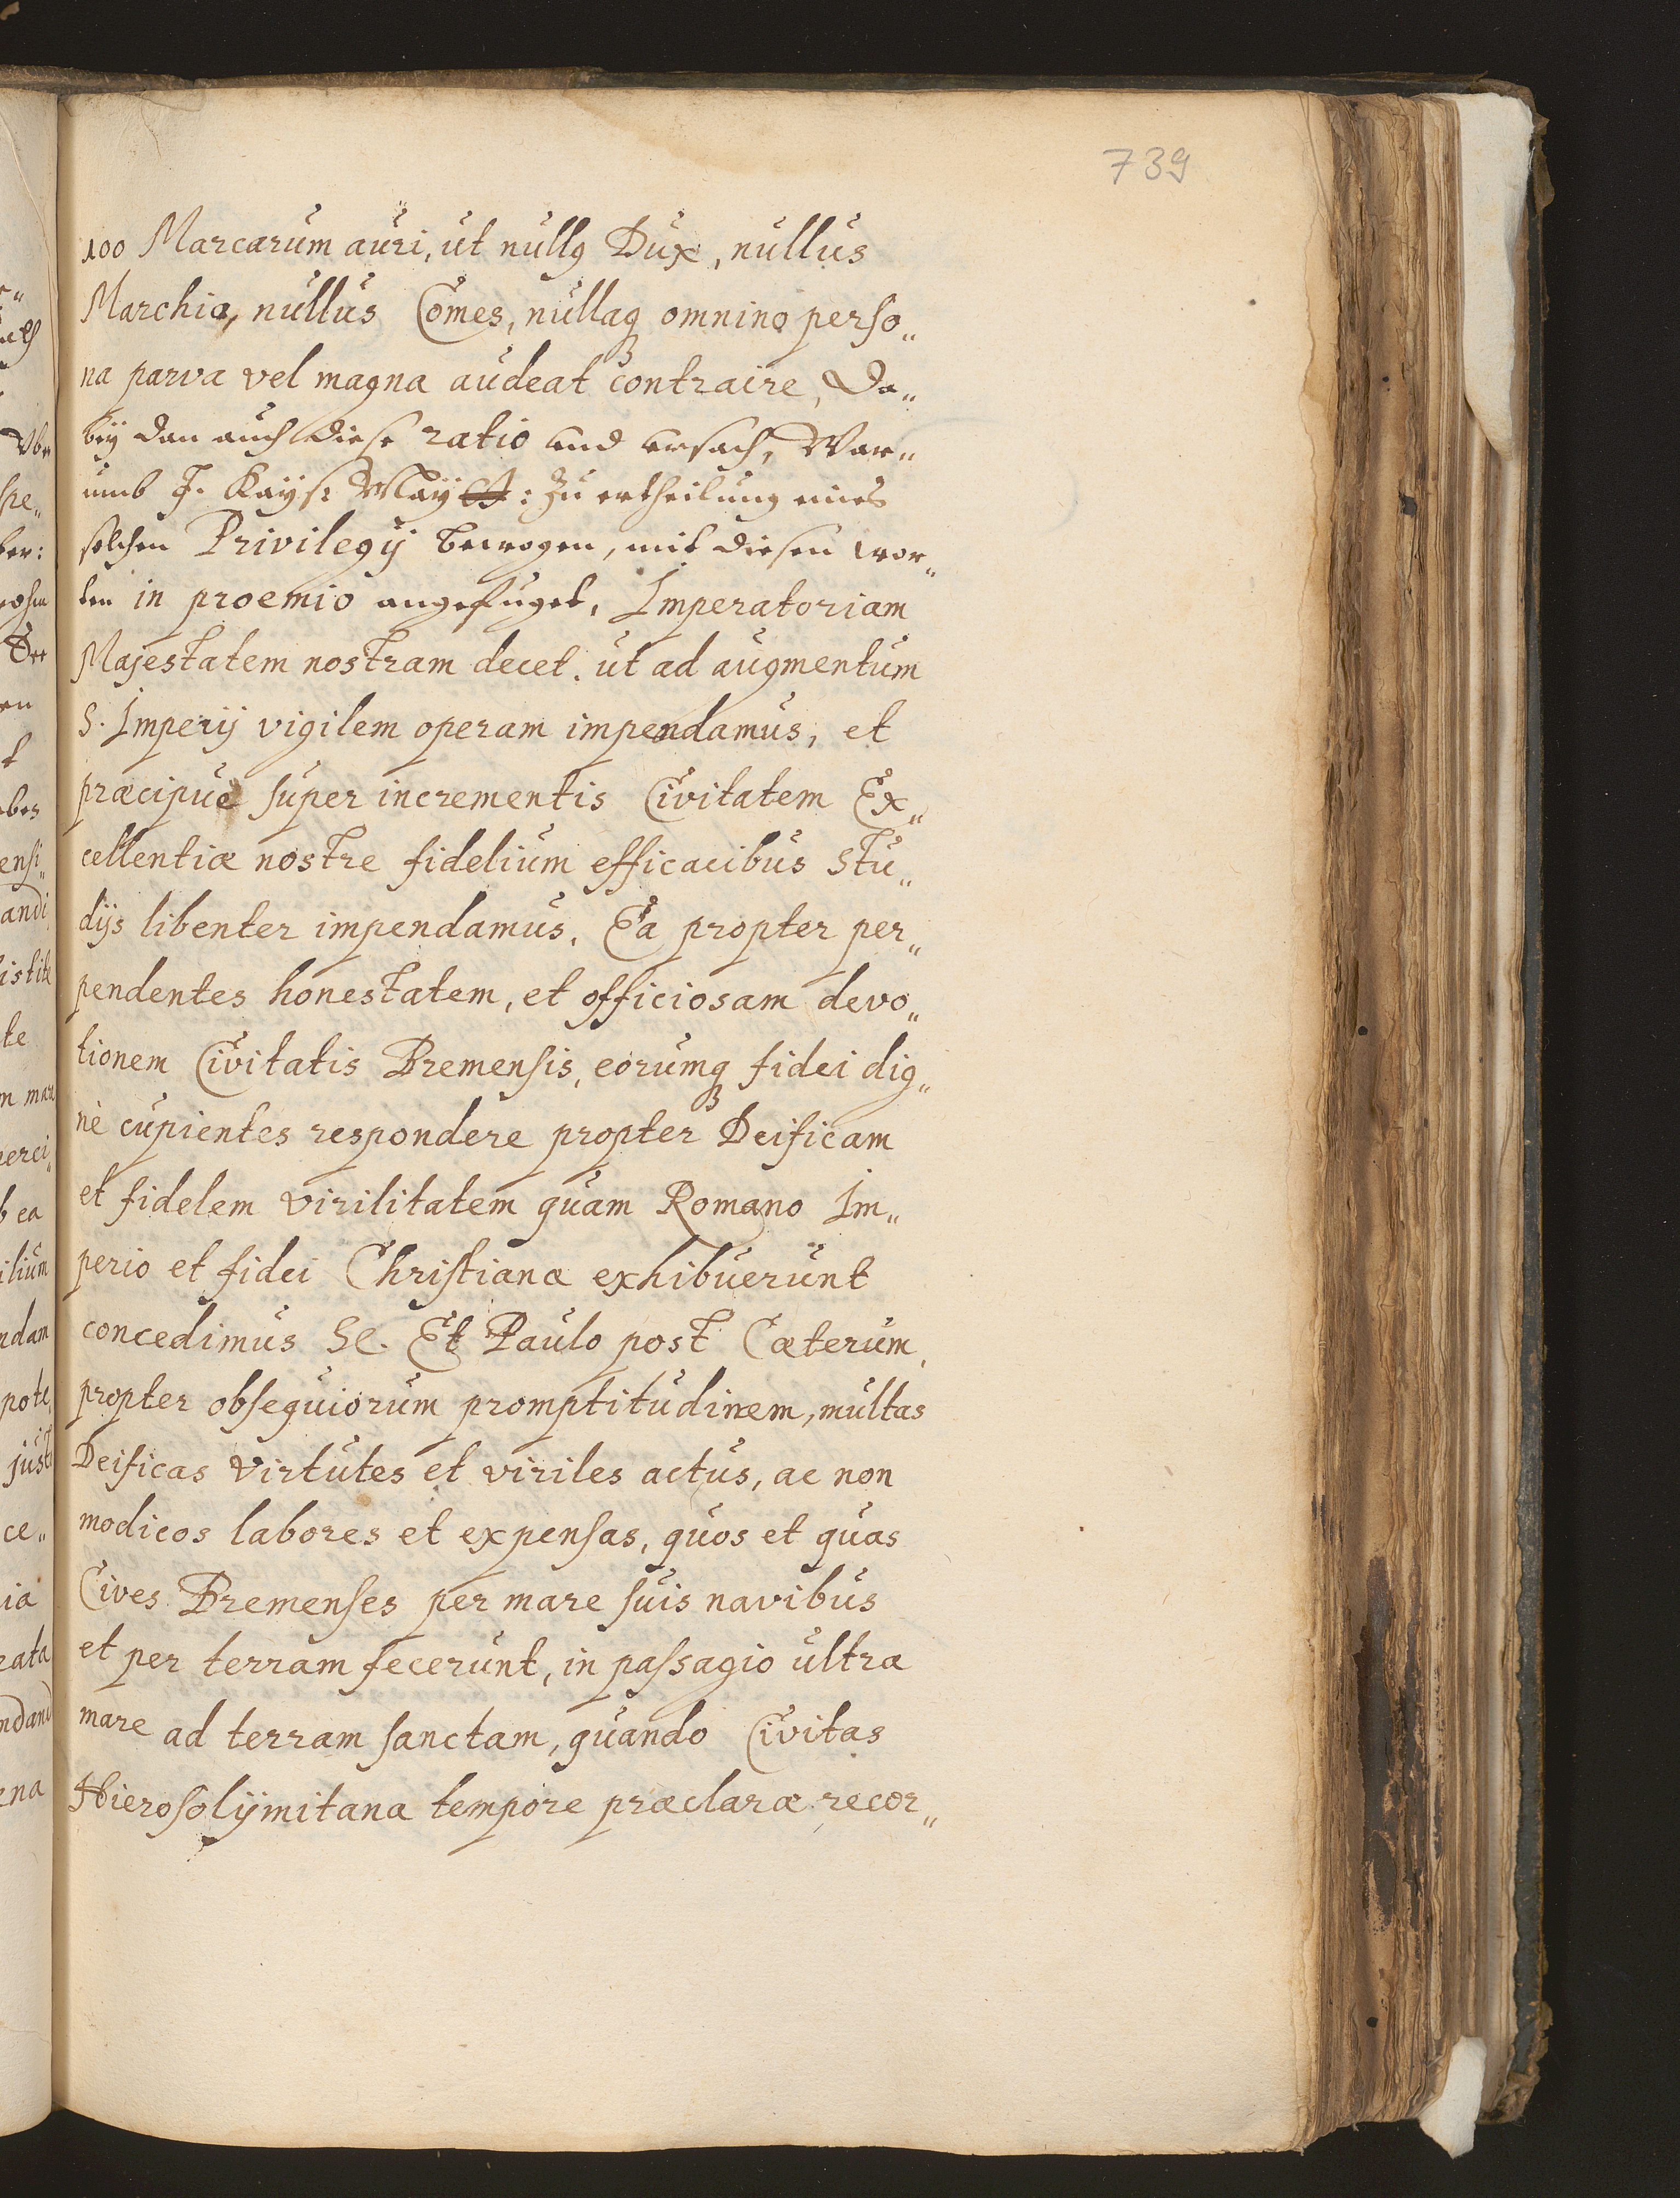 739
100 Marcarum auri, ut nullꝰ Dux, nullus
Marchio, nullus Comes, nullaqꝫ omnino perso„
na parva vel magna audeat contraire, Da„
beÿ dan auch diese ratio und ursach, War„
umb J. Kayß: Maÿtt: zu ertheilung eines
solchen Privilegij bewogen, mit diesen wor„
ten in proemio angefüget, Imperatoriam
Majestatem nostram decet. ut ad augmentum
S. Imperij vigilem operam impendamus, et
præcipuè super incrementis Civitatem Ex„
cellentiæ nostre fidelium efficacibus Stu„
dijs libenter impendamus. Ea propter per„
pendentes honestatem, et officiosam devo„
tionem Civitatis Bremensis, eorumqꝫ fidei dig„
nè cupientes respondere propter Deificam
et fidelem virilitatem quam Romano Im„
perio et fidei Christianæ exhibuerunt
concedimus &c. Et Paulo post Cæterum,
propter obsequiorum promptitudinem, multas
Deificas virtutes et viriles actus, ac non
modicos labores et expensas, quos et quas
Cives Bremenses per mare suis navibus
et per terram fecerunt, in passagio ultra
mare ad terram sanctam, quando Civitas
Hierosolÿmitana tempore præclaræ recor„